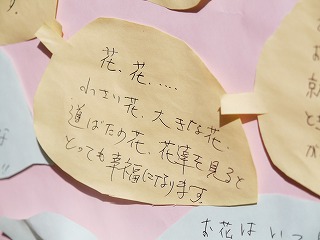 花、花、.....
小さい花、大きな花、
道ばたの花、花草を見ると
とっても幸福になります。
お花はいつ